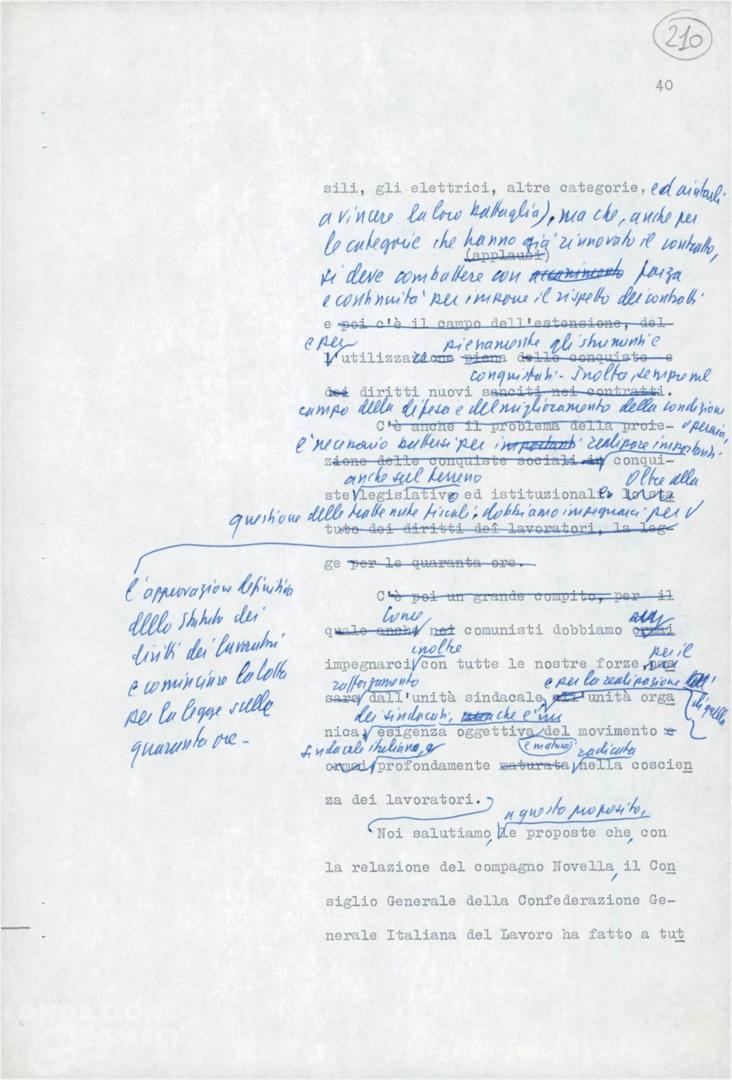 210
40
sili, gli elettrici, altre categorie, ed aiutarli
a vincere la loro battaglia), ma che, anche per
le categorie che hanno già rinnovato il contratto,
(applausi)
si deve combattere con accanimento forza
e continuità per imporre il rispetto dei contratti
e poi c'è il campo dell'estensione, del-
e per pienamente gli strumenti e
l'utilizzazione piena delle conquiste e
conquistati. Inoltre, sempre nel
dei diritti nuovi sanciti nei contratti.
campo della difesa e del miglioramento della condizione
C'è anche il problema della proie- operaia,
è necessario battersi per importanti realizzare importanti
zione delle conquiste sociali in conqui-
anche sul terreno Oltre alla
ste legislative ed istituzionali. lo sta
questione delle trattenute fiscali. dobbiamo impegnarci per
tuto dei diritti dei lavoratori, la leg-
ge per le quaranta ore.
l'approvazione definitiva
dello Statuto dei
diritti dei lavoratori
e cominciare la lotta
per la legge sulle
quaranta ore -
C'è poi un grande compito, per il
Come
quale anche noi comunisti dobbiamo ormai
inoltre per il
impegnarci con tutte le nostre forze, pas
rafforzamento e per la realizzazione
sare dall'unità sindacale all'unità orga di quella
dei sindacati, che è
nica, esigenza oggettiva del movimento e
sindacale italiano, e è maturata radicata
ormai profondamente maturata nella coscien
za dei lavoratori.
a questo proposito,
Noi salutiamo, le proposte che, con
la relazione del compagno Novella, il Con
siglio Generale della Confederazione Ge-
nerale Italiana del Lavoro ha fatto a tut
FONDAZIONE
GRAMSCI